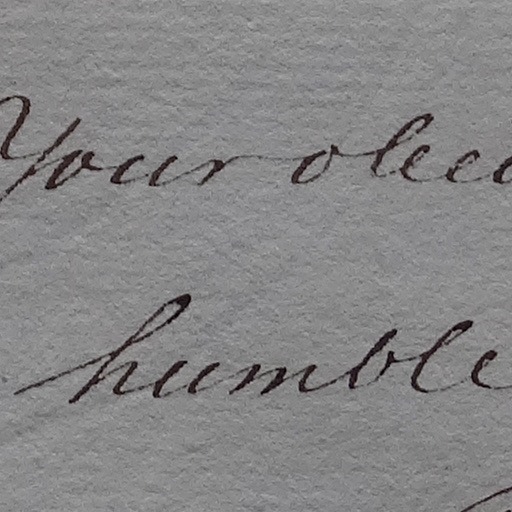 Your obed
humble